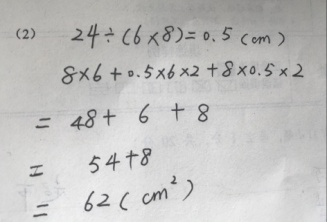 (2) 24÷(6×8)=0.5(cm)
8×6+0.5×6×2+8×0.5×2
= 48+ 6 + 8
= 54+8
= 62(cm²)